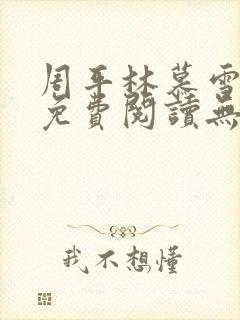 周平林慕雪
免費閱讀無
我不想懂